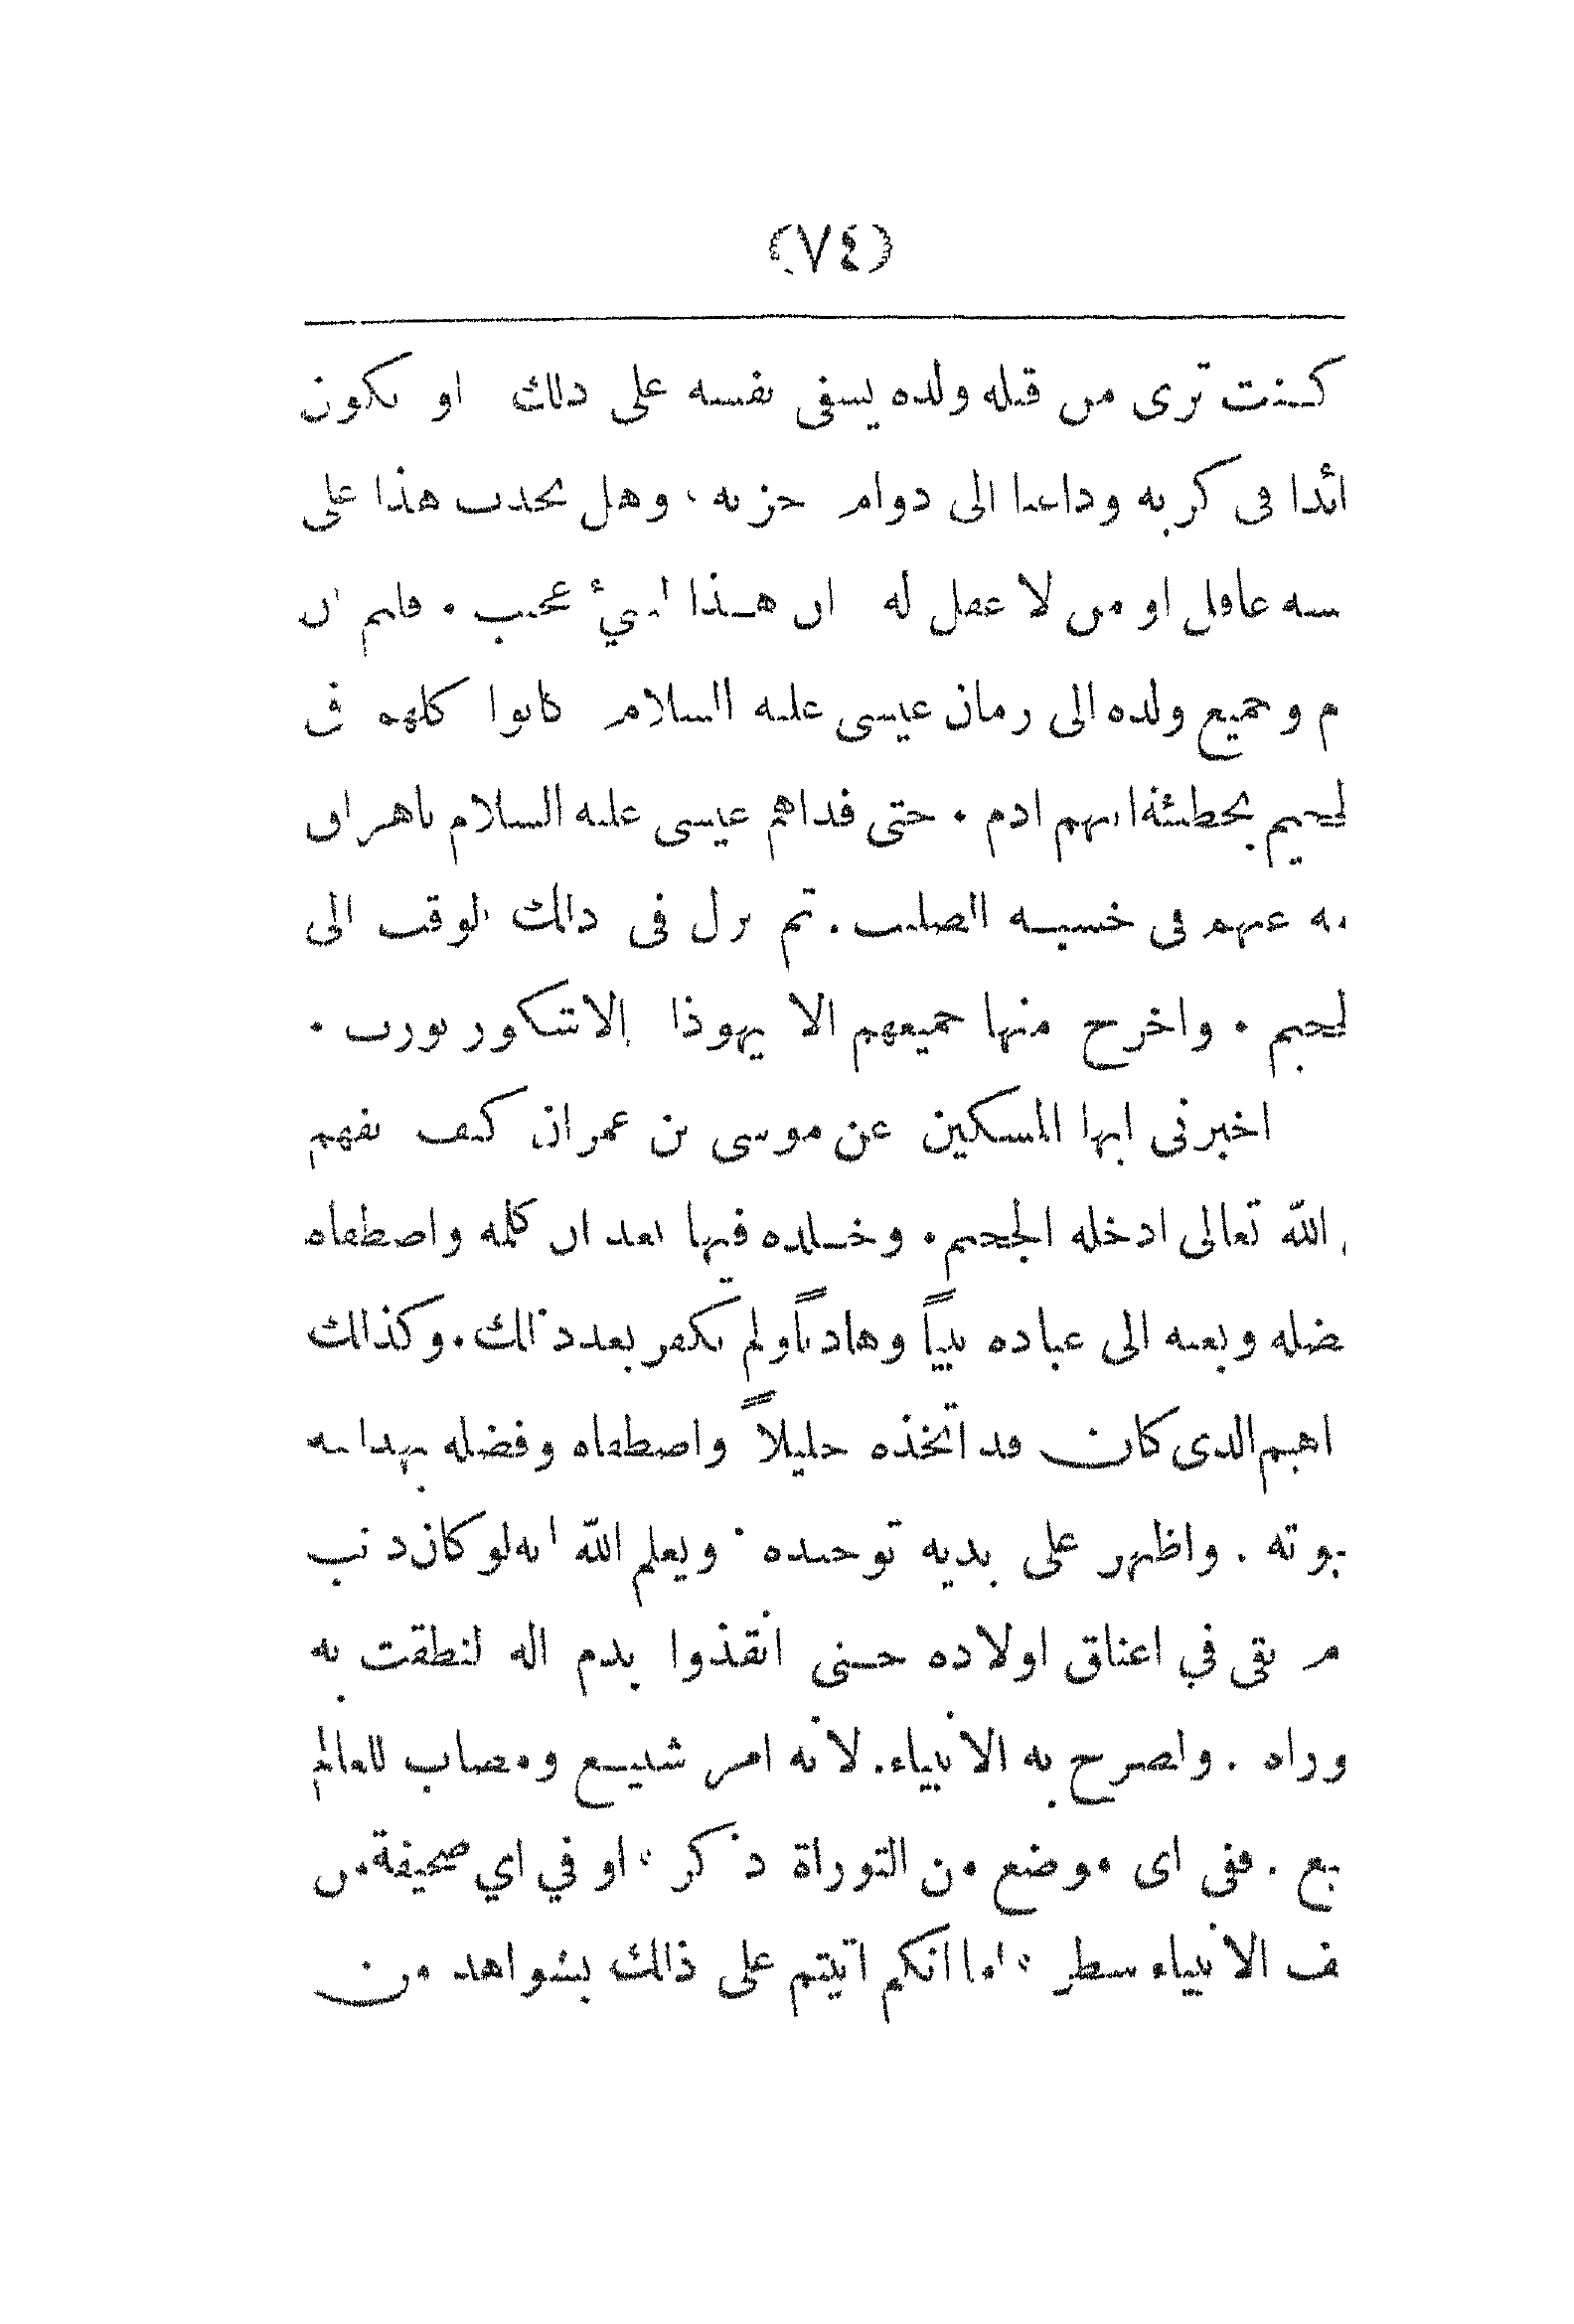 (٧٤)
كنت ترى من قتله ولده يسفى نفسه على ذلك او يكون
ائدا في كربه وداعيا الى دوام حزنه . وهل يحدث هذا على
سه عاقل او من لا عقل له ان هذا لشيء عجيب . قلتم ان
م وجميع ولده الى زمان عيسى عليه السلام كانوا كلهم في
لجحيم بخطيئة ابيهم ادم . حتى فداهم عيسى عليه السلام باهراق
مه عنهم في خشبة الصليب . ثم نزل في ذالك الوقت الى
لجحيم . واخرج منها جميعهم الا يهوذا الاشكوريورت .
اخبرني ايها المسكين عن موسى بن عمران كيف تفهم
الله تعالى ادخله الجحيم . وخلده فيها بعد ان كلمه واصطفاه
ضله وبعثه الى عباده نبياً وهادياً ولم يكفر بعد ذالك . وكذالك
اهيم الذي كان قد اتخذه خليلاً واصطفاه وفضله بهدايته
بوته . واظهر على يديه توحيده . ويعلم الله انه لو كان ذنب
م بقى في اعناق اولاده حتى انقذوا بدم اله لنطقت به
وراه . ولصرح به الانبياء . لانه امر شنيع ومصاب للعالم
يع . ففى اى موضع من التوراة ذكر . او في اي صحيفة من
ف الانبياء سطر . اما انكم اتيتم على ذالك بشواهد من